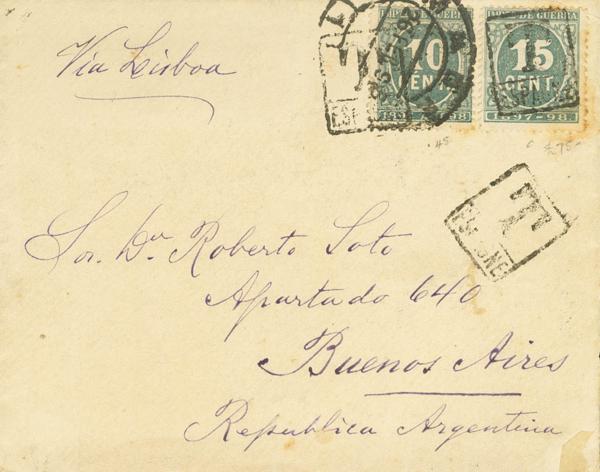 Via Lisboa
IMPTO DE GUERRA
10
CENT.
1897-98
IMPTO DE GUERRA
15
CENT.
1897-98
Sor. Dn Roberto Soto
Apartado 640
Buenos Aires
Republica Argentina